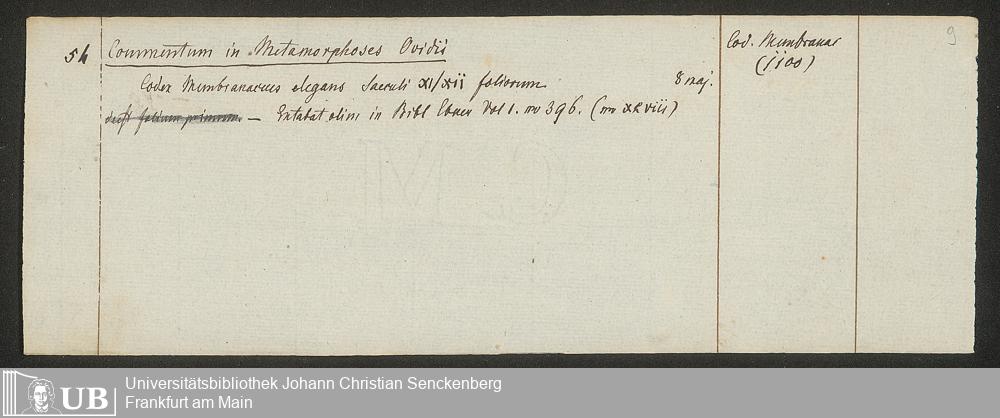 54 Commentum in Metamorphoses Ovidii Cod. Membranac 9
(1100)
Codex Membranaceus elegans Saeculi XI/XII foliorum 8 maj.
deest folium primum. — Extabat olim in Bibl Ebner Vol 1. no 396. (no XLVIII)
CM
UB Universitätsbibliothek Johann Christian Senckenberg
Frankfurt am Main